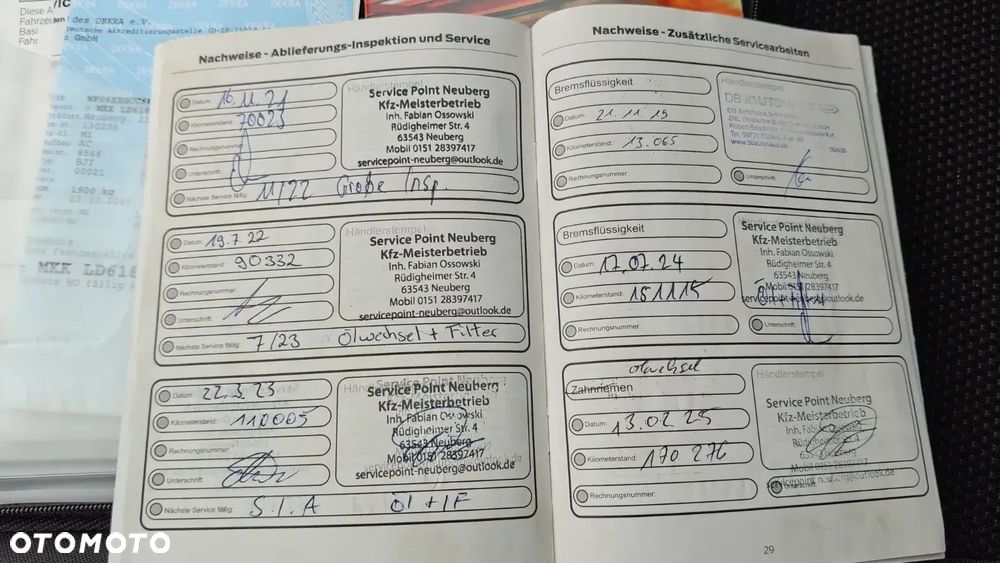 Diese A
Fahrzeu
Basi
Fah
des DEKRA e.V.
Deutsche Akkreditierungsstelle
GmbH
DEKRA
MKK LD618
1900 kg
MKK LD618
Nachweise - Ablieferungs-Inspektion und Service
Datum: 16.11.21
Kilometerstand: 70023
Rechnungsnummer:
Unterschrift:
Nächste Service fällig: 11/22 Große Insp.
Händlerstempel
Service Point Neuberg
Kfz-Meisterbetrieb
Inh. Fabian Ossowski
Rüdigheimer Str. 4
63543 Neuberg
Mobil 0151 28397417
servicepoint-neuberg@outlook.de
Datum: 19.7.22
Kilometerstand: 90332
Rechnungsnummer:
Unterschrift:
Nächste Service fällig: 7/23 Ölwechsel + Filter
Händlerstempel
Service Point Neuberg
Kfz-Meisterbetrieb
Inh. Fabian Ossowski
Rüdigheimer Str. 4
63543 Neuberg
Mobil 0151 28397417
servicepoint-neuberg@outlook.de
Datum: 22.3.23
Kilometerstand: 110005
Rechnungsnummer:
Unterschrift:
Nächste Service fällig: S.I.A Öl + IF
Service Point Neuberg
Kfz-Meisterbetrieb
Inh. Fabian Ossowski
Rüdigheimer Str. 4
63543 Neuberg
Mobil 0151 28397417
servicepoint-neuberg@outlook.de
Nachweise - Zusätzliche Servicearbeiten
Bremsflüssigkeit
Datum: 21.11.19
Kilometerstand: 13.065
Rechnungsnummer:
Händlerstempel
Unterschrift:
Bremsflüssigkeit
Datum: 17.07.24
Kilometerstand: 151115
Rechnungsnummer:
Service Point Neuberg
Kfz-Meisterbetrieb
Inh. Fabian Ossowski
Rüdigheimer Str. 4
63543 Neuberg
Mobil 0151 28397417
servicepoint-neuberg@outlook.de
Unterschrift:
Ölwechsel
Zahnriemen
Datum: 13.02.25
Kilometerstand: 170 276
Rechnungsnummer:
Händlerstempel
Service Point Neuberg
Kfz-Meisterbetrieb
Inh. Fabian Ossowski
Rüdigheimer Str. 4
63543 Neuberg
Mobil 0151 28397417
servicepoint-neuberg@outlook.de
29
OTOMOTO